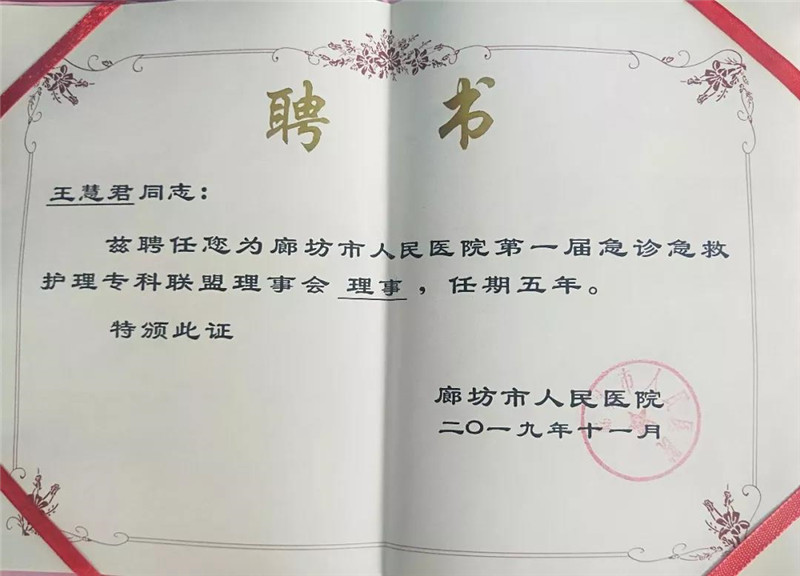 聘 书
王慧君同志：
兹聘任您为廊坊市人民医院第一届急诊急救
护理专科联盟理事会 理事，任期五年。
特颁此证
廊坊市人民医院
二〇一九年十一月